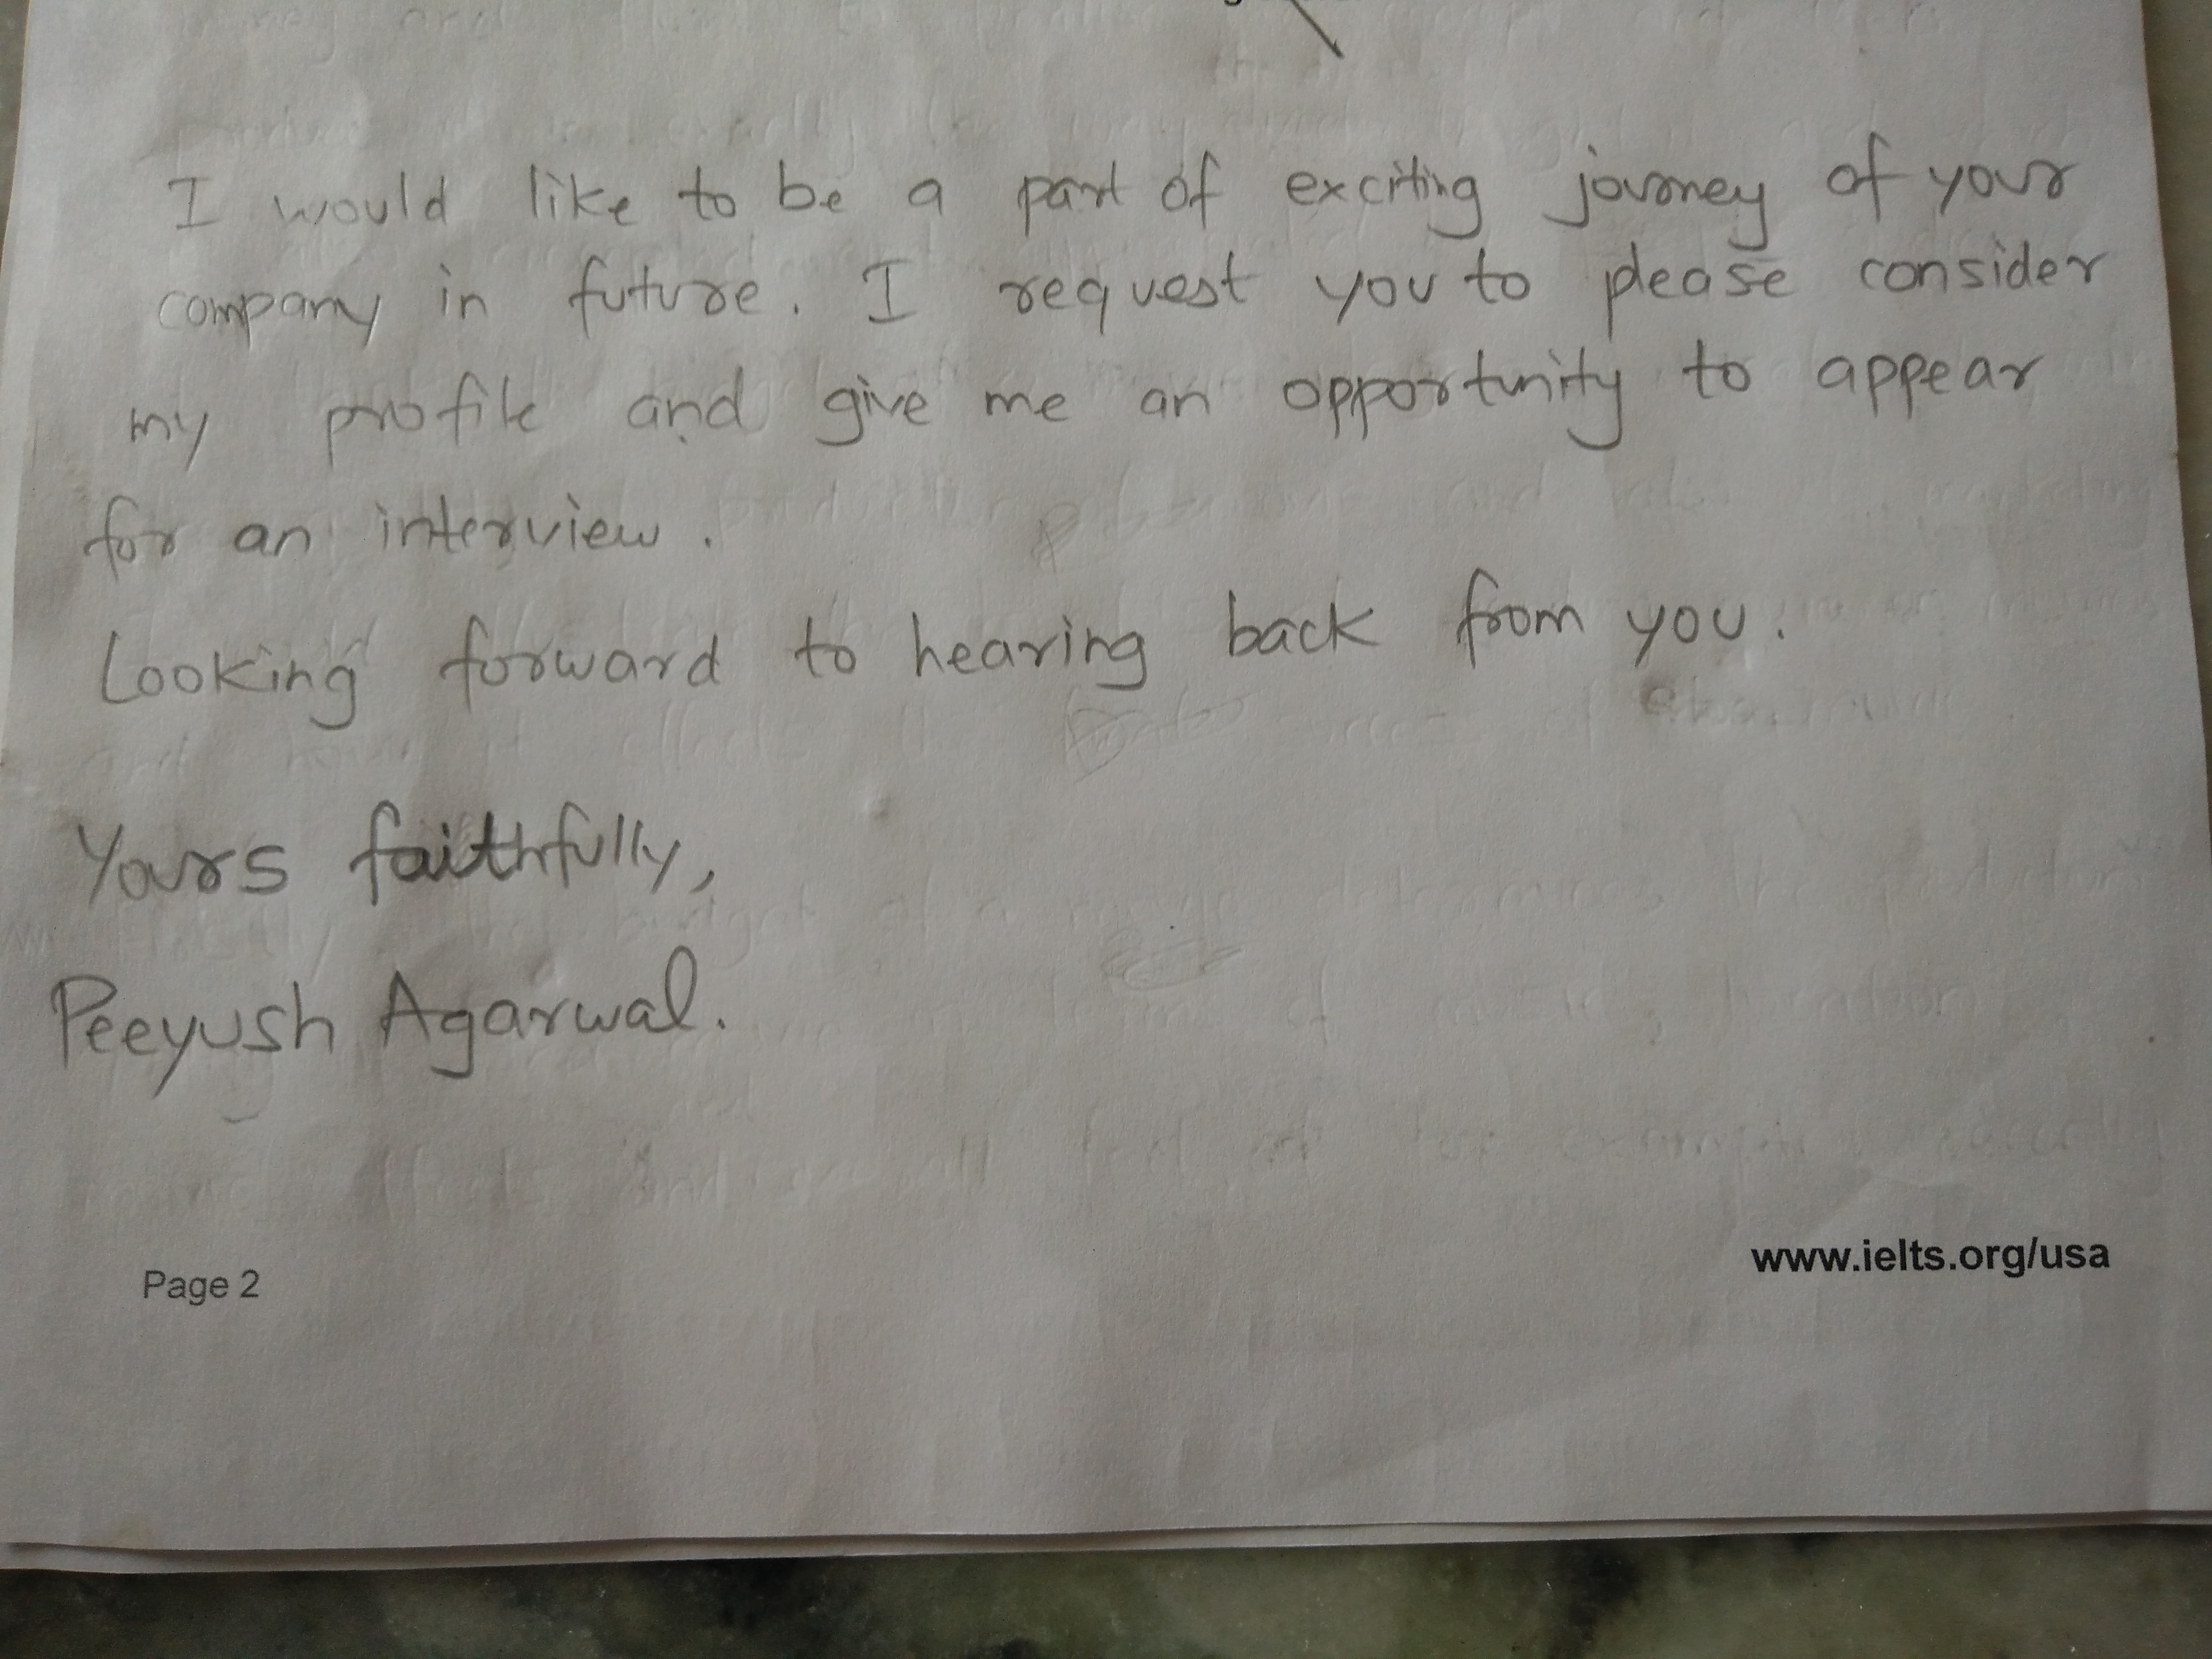 I would like to be a part of exciting journey of your
company in future. I request you to please consider
my profile and give me an opportunity to appear
for an interview.
Looking forward to hearing back from you.
Yours faithfully,
Peeyush Agarwal.
Page 2
www.ielts.org/usa